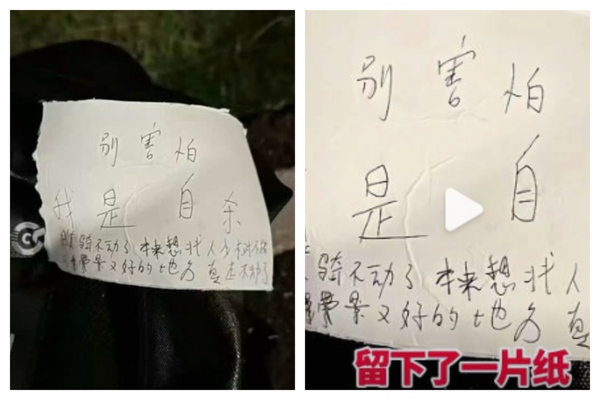 别害怕
我是自杀
骑不动了 本来想找人少
景又好的地方 真走不动了
别害怕
是自
骑不动了 本来想找人
景又好的地方 真
留下了一片纸